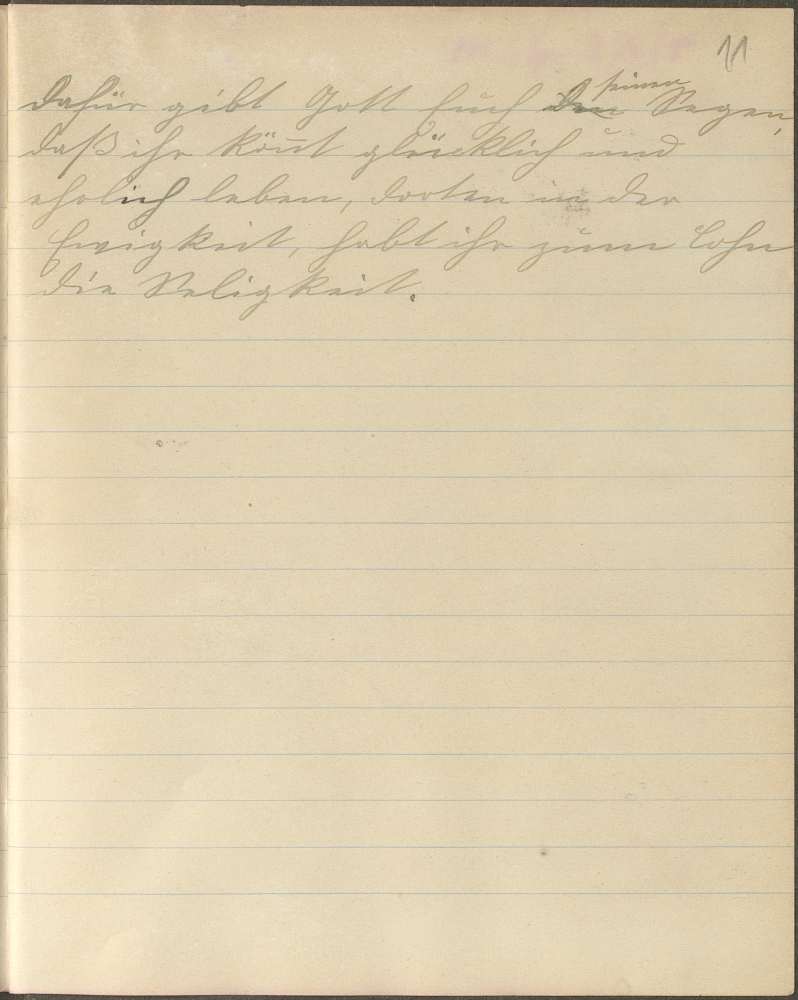 11
Dafür gibt Gott Euch den seinen Segen,
daß ihr könnt glücklich und
ehrlich leben, dorten in der
Ewigkeit, habt ihr zum Lohn
die Seligkeit.